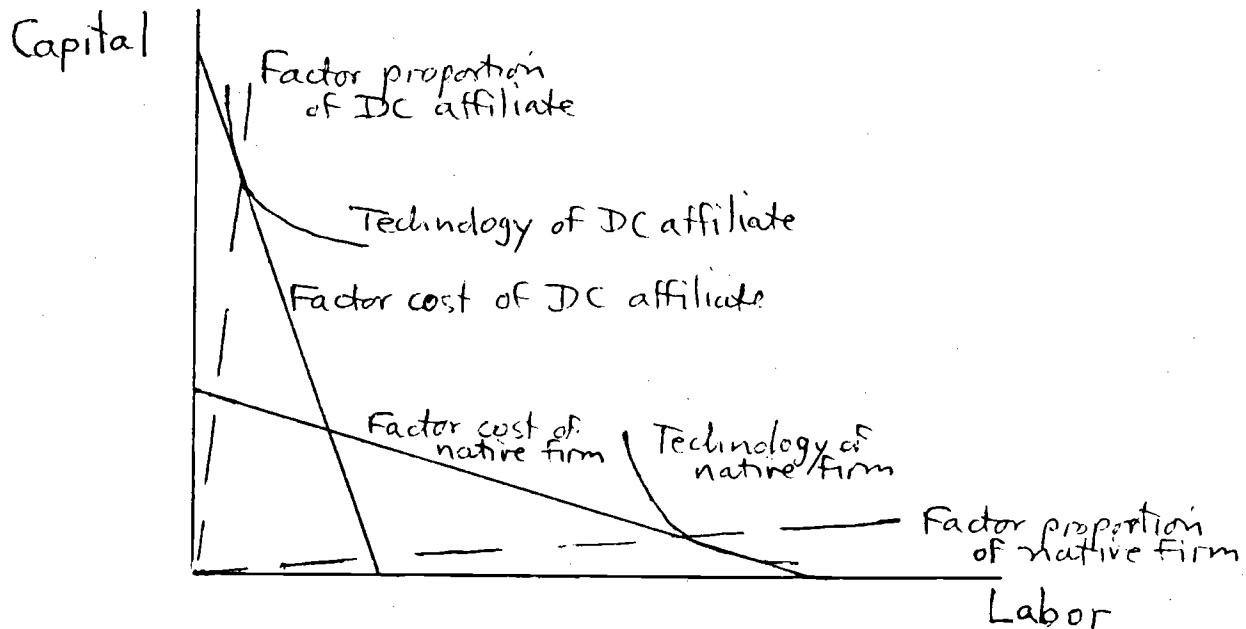 Capital
Factor proportion
of DC affiliate
Technology of DC affiliate
Factor cost of DC affiliate
Factor cost of
native firm
Technology of
native firm
Factor proportion
of native firm
Labor